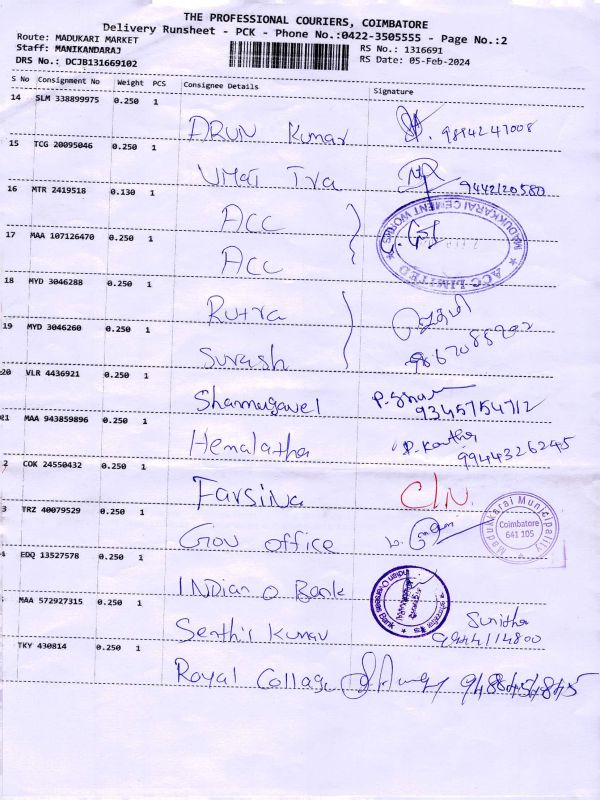 THE PROFESSIONAL COURIERS, COIMBATORE
Delivery Runsheet - PCK - Phone No.:0422-3505555 - Page No.:2
Route: MADUKARI MARKET
RS No.: 1316691
Staff: MANIKANDARAJ
RS Date: 05-Feb-2024
DRS No.: DCJB131669102
S No Consignment No Weight PCS Consignee Details Signature
14 SLM 338899975 0.250 1
ARUN Kumar 9894247008
15 TCG 20095046 0.250 1
UMAI Tra 9442120580
16 MTR 2419518 0.130 1
ACC
MADUKKARAI CEMENT WORKS
ACC LIMITED
17 MAA 107126470 0.250 1
ACC
18 MYD 3046288 0.250 1
Rutra
19 MYD 3046260 0.250 1
Surash
20 VLR 4436921 0.250 1
Shanmugavel 9345754712
21 MAA 943859896 0.250 1
Hemalatha P. Kavitha
9944326245
2 COK 24550432 0.250 1
Farsina C/N.
3 TRZ 40079529 0.250 1
Gov office
Madukkarai Municipality
Coimbatore
641 105
4 EDQ 13527578 0.250 1
INDian O Bank
Indian Overseas Bank
MAA 572927315 0.250 1
Senthil Kumar Sunitha
9944114800
TKY 430814 0.250 1
Royal Collage